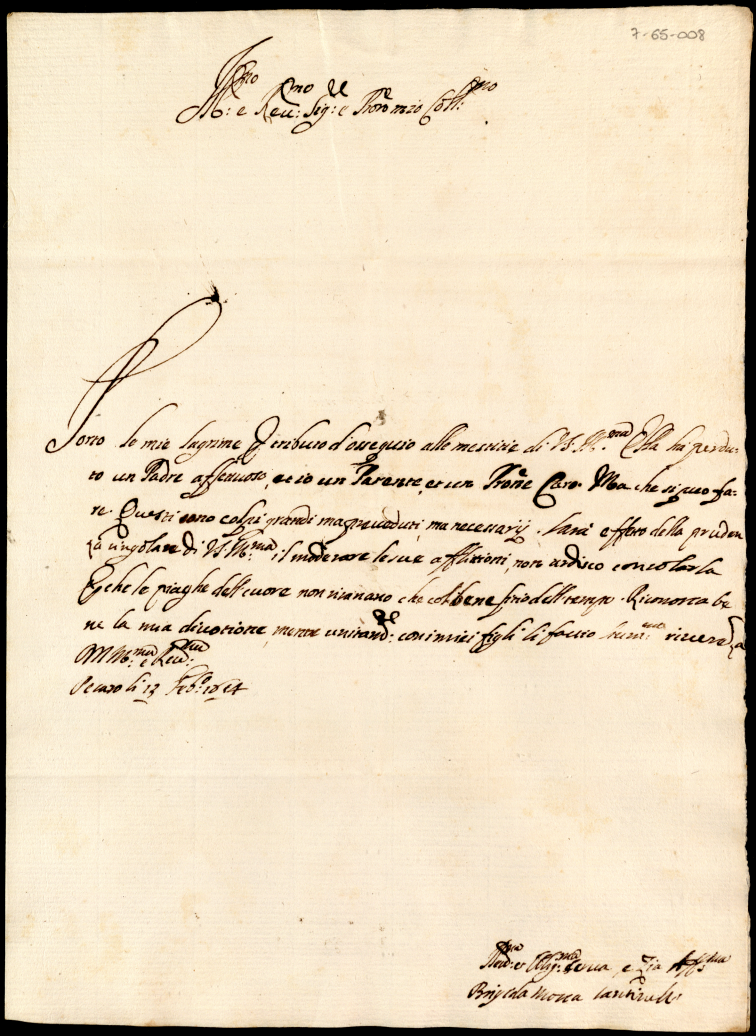 7-65-008
Ill:mo e Reu:mo Sig:re e Pron̄e mio Coll:mo
Porto le mie lagrime per tributo d'ossequio alle mestitie di V.S. Ill:ma Ella hà perdu-
to un Padre affettuoso, et io un Parente, et un Pron̄e Caro. Ma che si può fa-
re. Questi sono colpi grandi ma preueduti, ma necessarij. Sarà effetto della pruden
za singolare di V.S. Ill:ma, il moderare le sue afflittioni, non ardisco consolarla
perche le piaghe dell'cuore non sianano che col bene
dell tempo. Riconosca be
ne la mia diuotione, mentre unitam:te con i miei figli li faccio hum:ma riuerenza
Di V.S. Ill:ma e Reu:ma
Pesaro li 13 Feb:o 1654
Deu:ma et Obl:ma serua, e Zia Aff:ma
Brigida Mosca